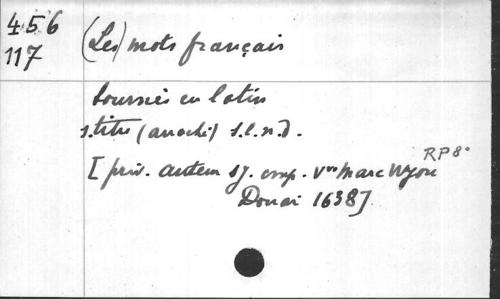 456
117
(Les) mots français
tournés en latin
s. titre (arraché) s.l.n.d.
[priv. autem SJ. imp. Vve Marc Wyon
RP 8°
Douai 1638].